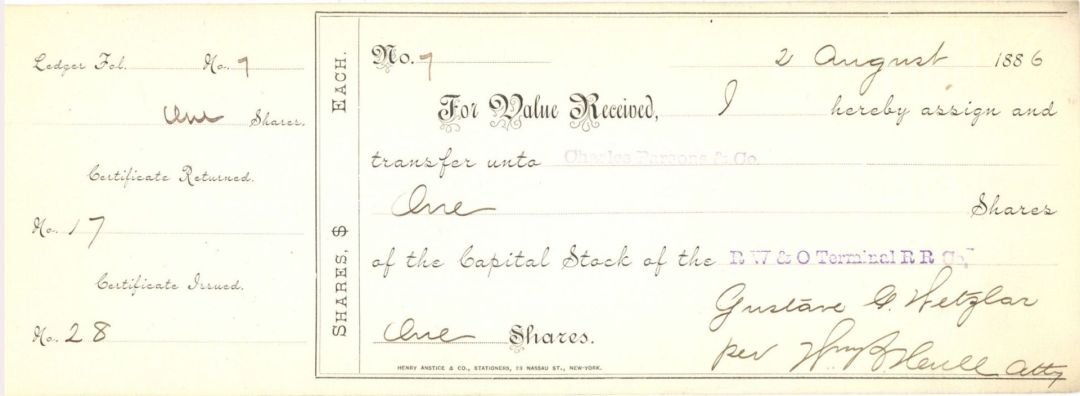 Ledger Fol. No. 7
One Shares.
Certificate Returned.
No. 17
Certificate Issued.
No. 28
SHARES, $ EACH.
No. 7
2 August 1886
For Value Received, I hereby assign and
transfer unto Charles Parsons & Co.
One Shares
of the Capital Stock of the R W & O Terminal R R Co,
Gustave G. Wetzlar
One Shares.
per Wm A Atty
HENRY ANSTICE & CO., STATIONERS, 23 NASSAU ST., NEW-YORK.